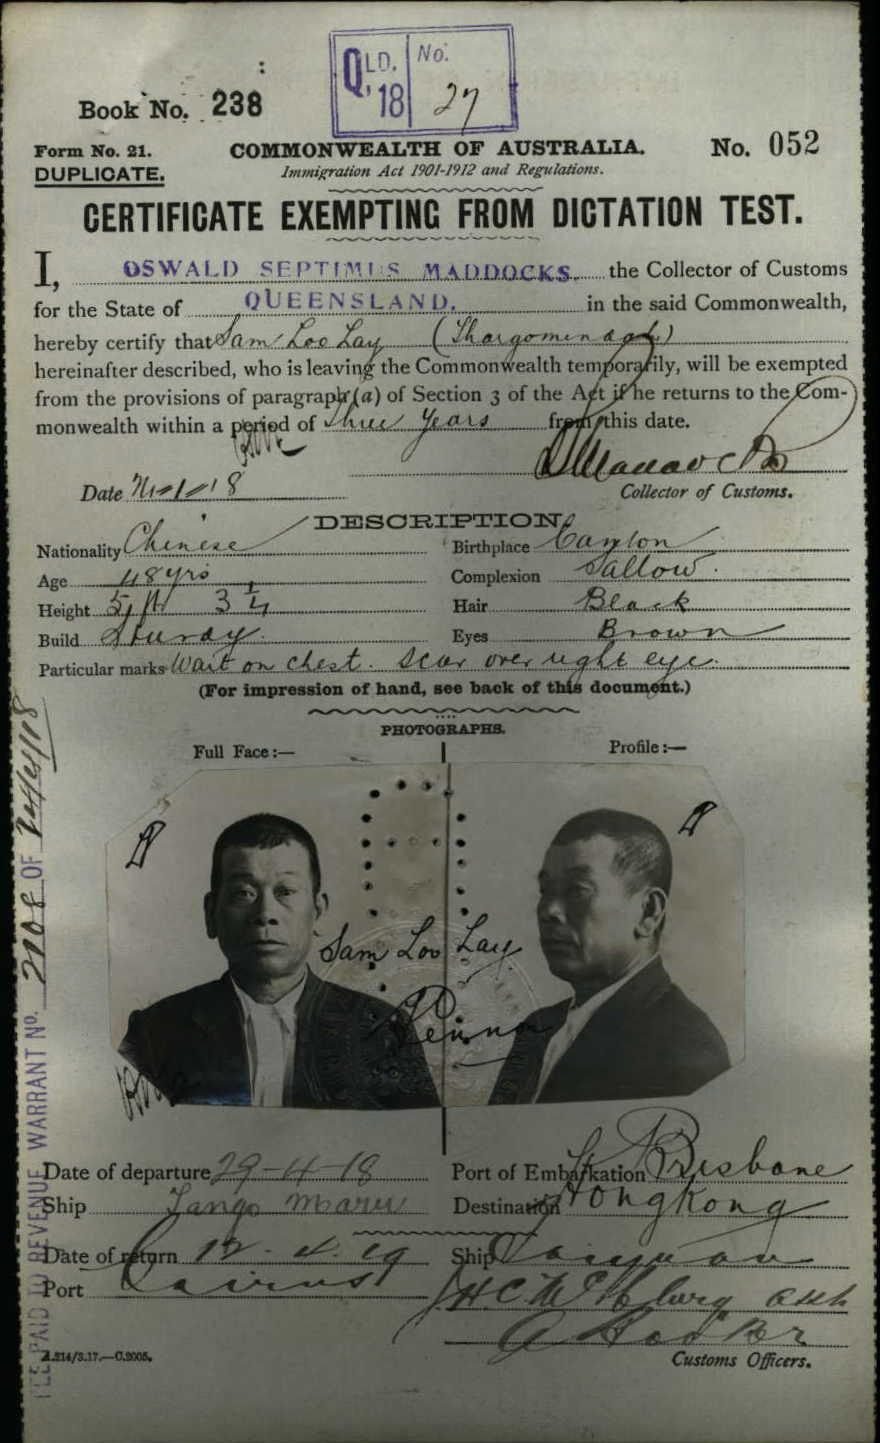 QLD. No.
'18 27
Book No. 238
Form No. 21. COMMONWEALTH OF AUSTRALIA. No. 052
DUPLICATE. Immigration Act 1901-1912 and Regulations.
CERTIFICATE EXEMPTING FROM DICTATION TEST.
I, OSWALD SEPTIMUS MADDOCKS. the Collector of Customs
for the State of QUEENSLAND. in the said Commonwealth,
hereby certify that Sam Loo Lay (Thargomindah)
hereinafter described, who is leaving the Commonwealth temporarily, will be exempted
from the provisions of paragraph (a) of Section 3 of the Act if he returns to the Com-
monwealth within a period of three years from this date.
Date
Collector of Customs.
DESCRIPTION.
Nationality Chinese Birthplace Canton
Age 48 yrs Complexion Sallow.
Height 5 ft 3 1/4 Hair Black
Build Sturdy. Eyes Brown
Particular marks Wart on chest. Scar over right eye.
(For impression of hand, see back of this document.)
PHOTOGRAPHS.
Full Face :— Profile :—
Sam Loo Lay
Date of departure 29-4-18 Port of Embarkation Brisbane
Ship Tango Maru Destination Hongkong
Date of return 12.4.19 Ship Taiyuan
Port Cairns
A.214/3.17.—C.2005. Customs Officers.
FEE PAID TO REVENUE WARRANT No. 2108 OF